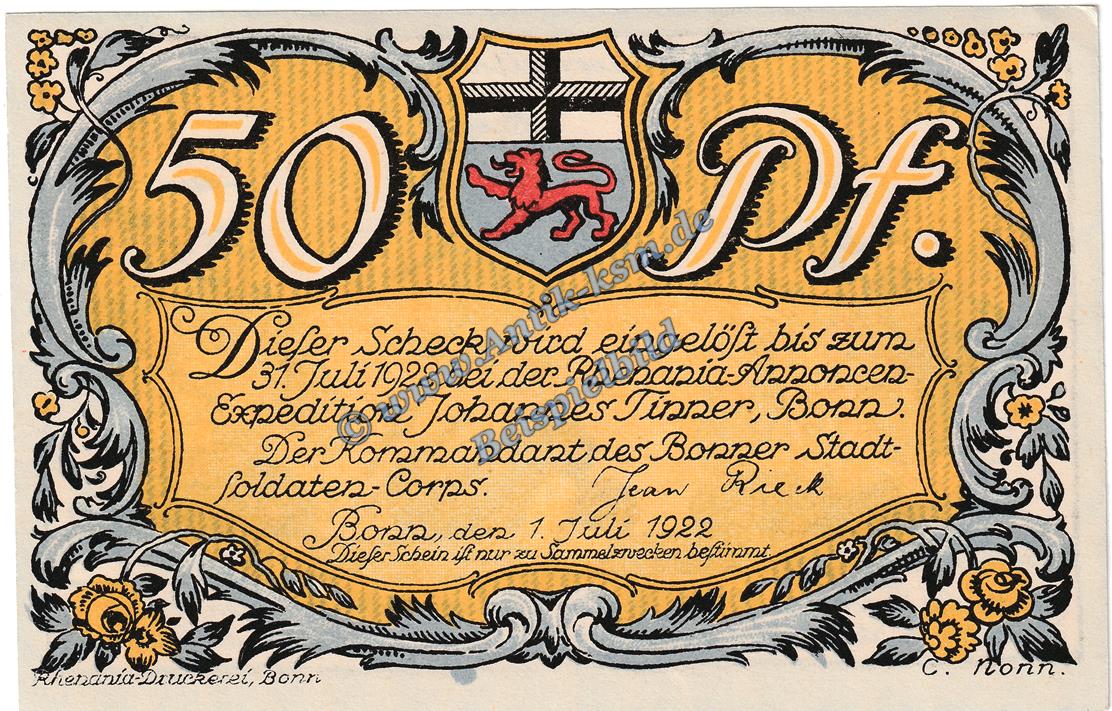 50 Pf.
Dieſer Scheck wird eingelöſt bis zum
31. Juli 1922 bei der Rhenania-Annoncen-
Expedition Johannes Tinner, Bonn.
Der Kommandant des Bonner Stadt-
ſoldaten-Corps. Jean Rieck
Bonn, den 1. Juli 1922
Dieſer Schein iſt nur zu Sammelzwecken beſtimmt.
Rhenania-Druckerei, Bonn
C. Nonn.
© www.Antik-ksm.de
Beispielbild